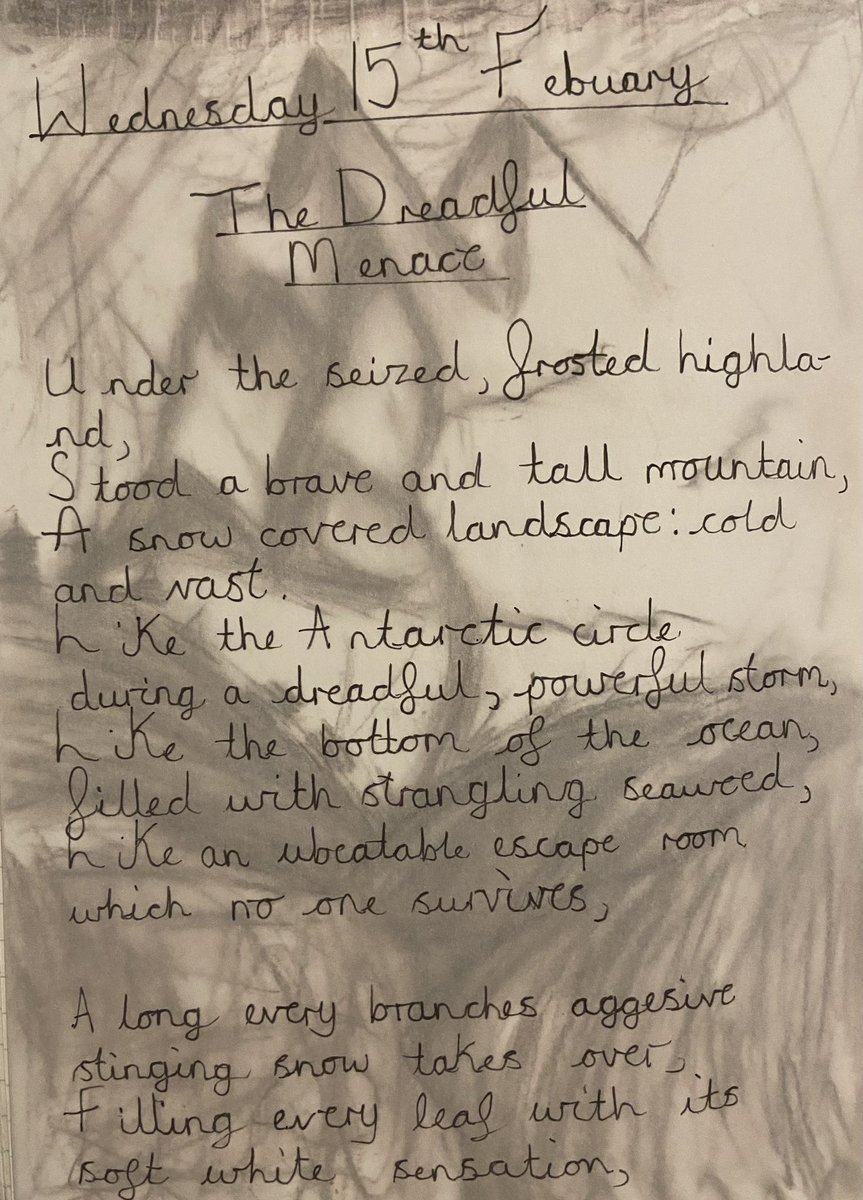 Wednesday 15th Febuary
The Dreadful
Menace
Under the seized, frosted highla-
nd,
Stood a brave and tall mountain,
A snow covered landscape: cold
and vast.
Like the Antarctic circle
during a dreadful, powerful storm,
Like the bottom of the ocean,
filled with strangling seaweed,
Like an ubeatable escape room
which no one survives,
A long every branches aggesive
stinging snow takes over,
Filling every leaf with its
soft white sensation,